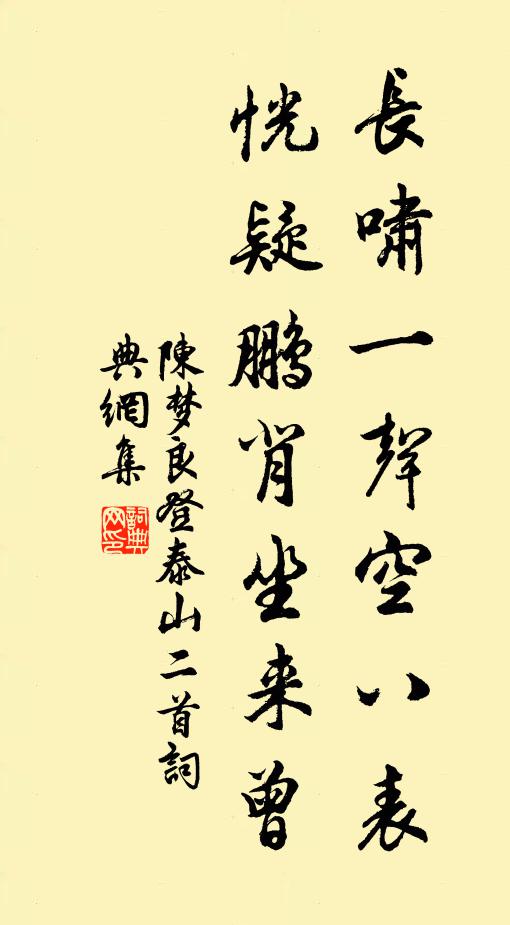 長嘯一聲空八表
恍疑鵬背坐来曾
陳梦良登泰山二首詞
典網集
詞典
网印